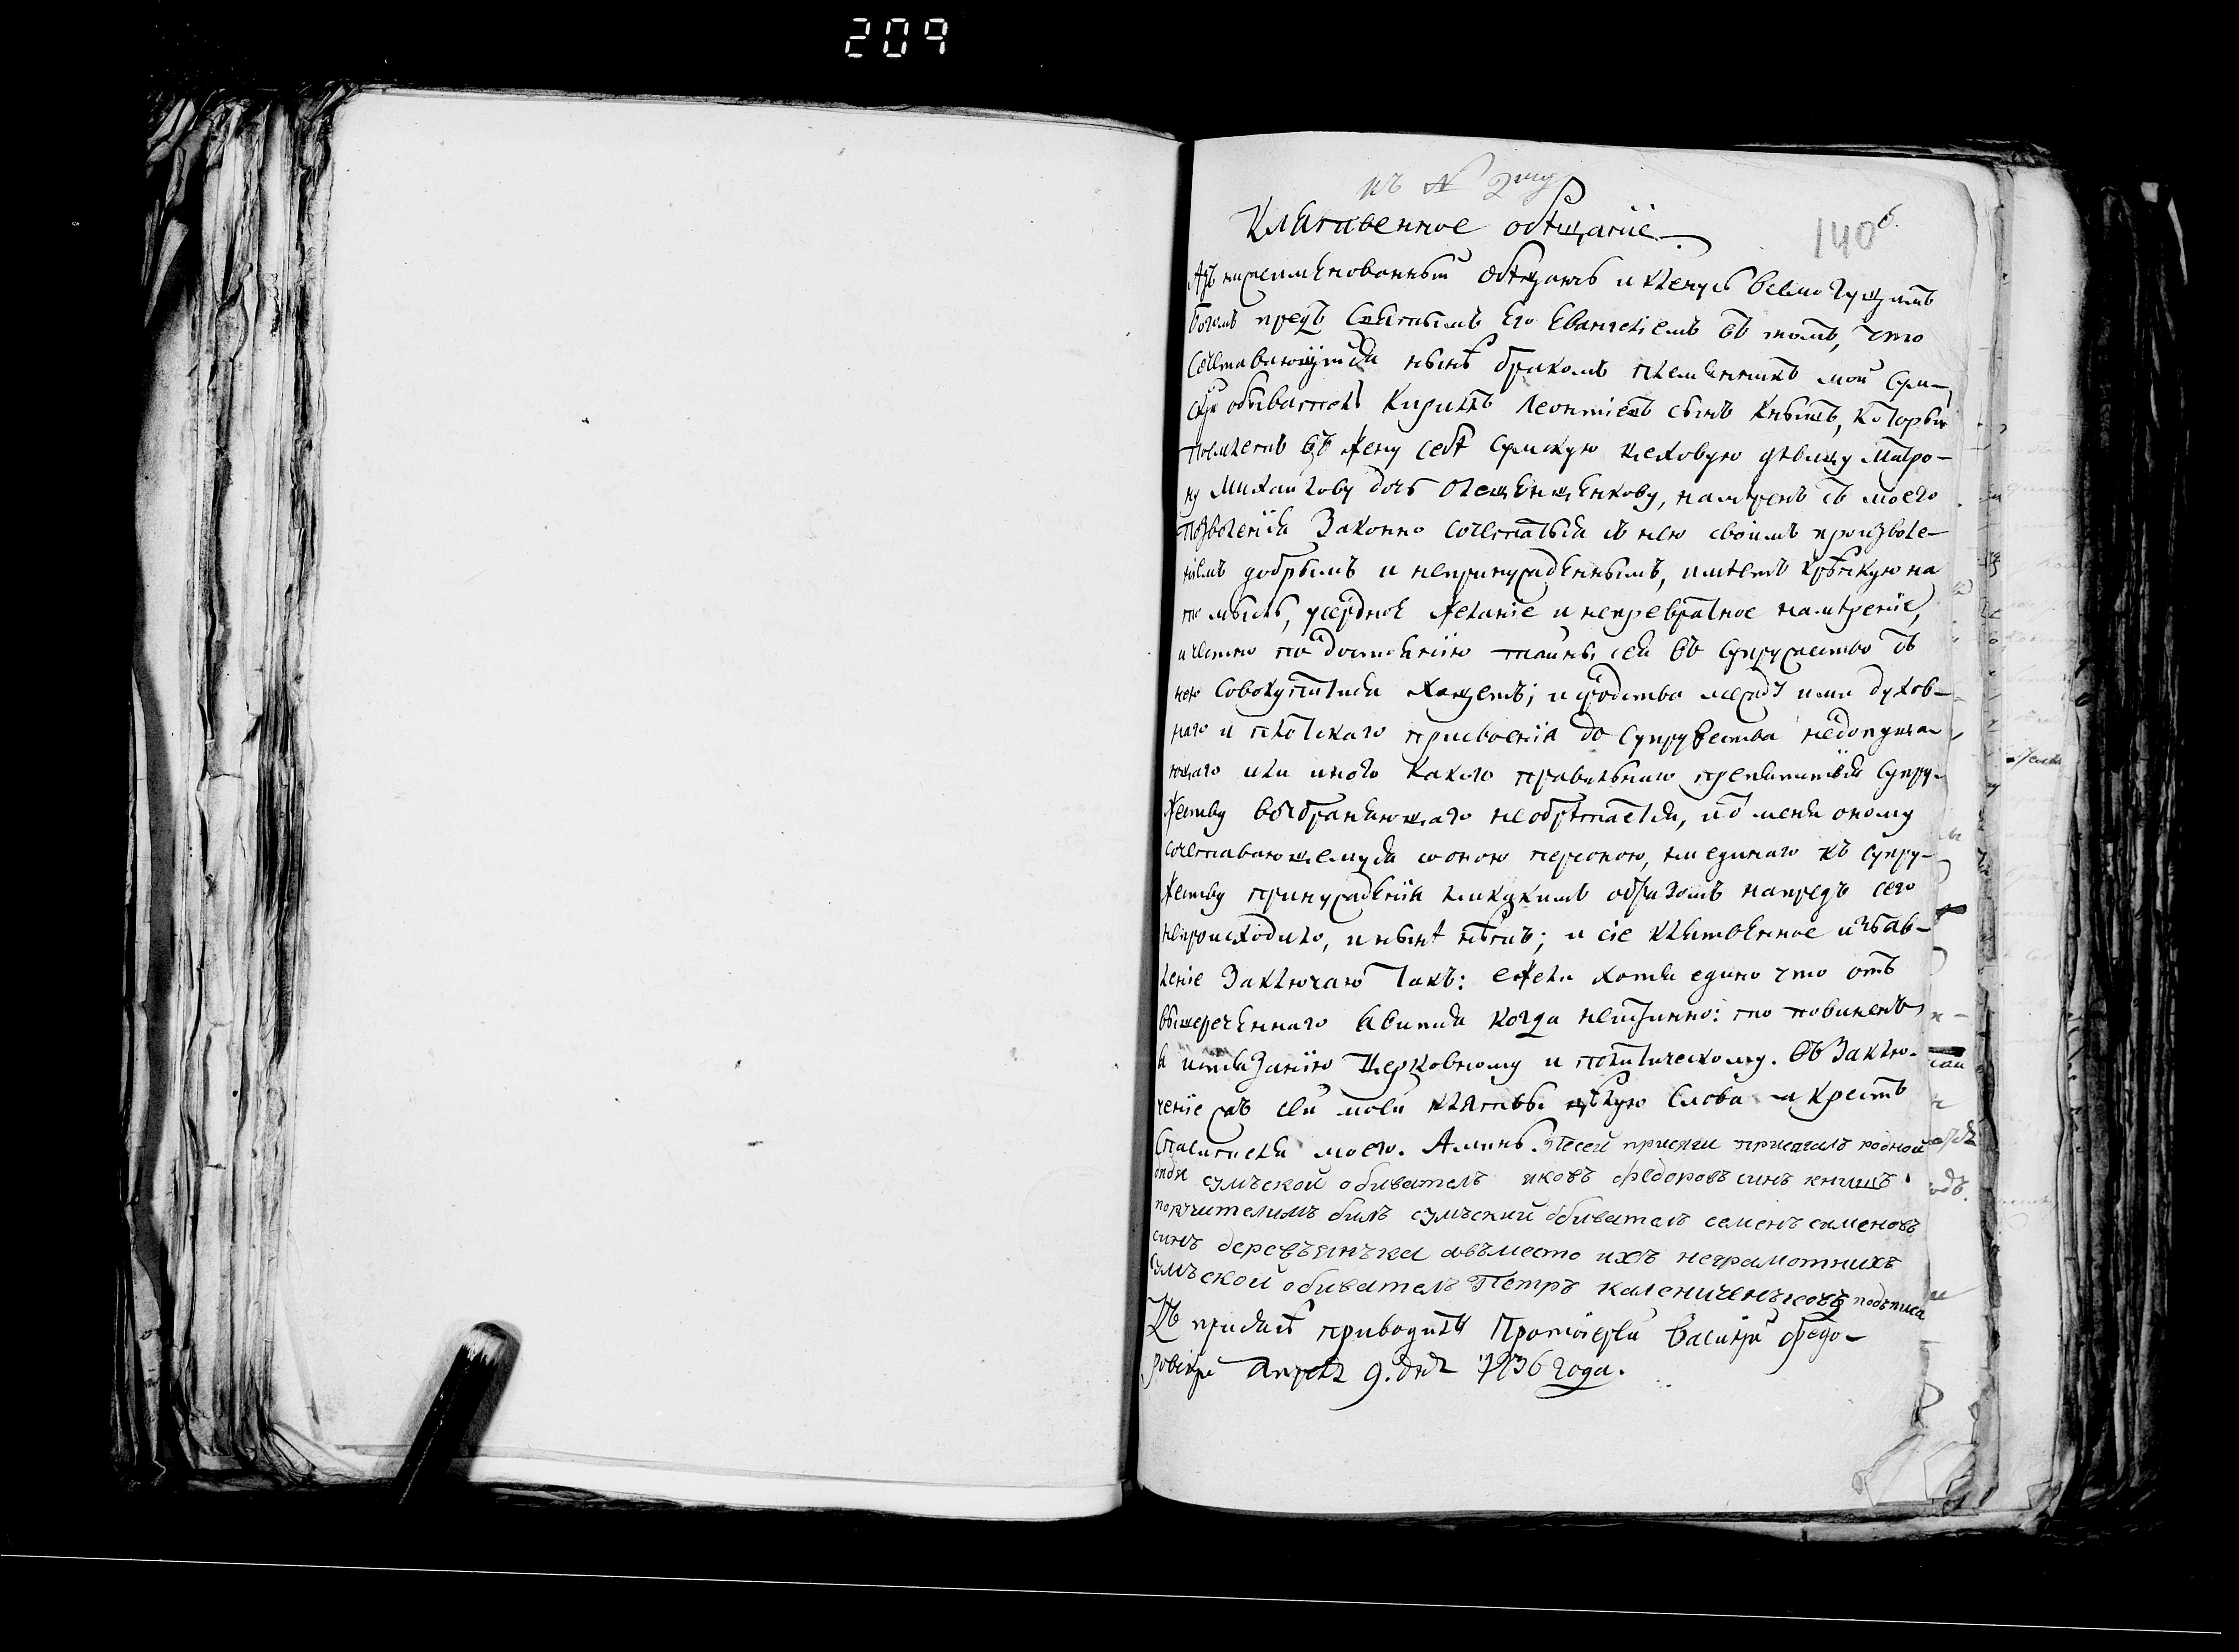 209
къ № 2му
Клятвенное обѣщанїе.
140 б.
Азъ нижеименованный обѣщаюсь и кленусь всемогущимъ
Богомъ предъ Святымъ Его Евангелїемъ въ томъ, что
сочетавающїйся нынѣ бракомъ племянникъ мой Сум-
скїй обыватель Кирилъ Леонтїевъ сынъ Кнышъ, который
поемлетъ въ жену себѣ Сумскую цеховую дѣвицу Матро-
ну Михайлову дочь, намѣренъ съ моего
позволенїя законно сочетаться съ нею своимъ произволе-
нїемъ добрымъ и непринужденнымъ, имѣетъ крѣпкую на
то мысль, усердное желанїе и непревратное намѣренїе,
и честно по достоянїю тайны сея въ супружество съ
нею совокупитися хощетъ; и сродства между ими духов-
наго и плотскаго присвоенїя до супружества недопуща-
ющаго или иного какого правильнаго препятствїя супру-
жеству возбраняющаго необрѣтается, и от мене оному
сочетавающемуся со оною персоною, ни единаго къ супру-
жеству принужденїя никакимъ образомъ напредъ сего
непроисходило, и нынѣ нѣсть; и сїе клятвенное изъяв-
ленїе заключаю такъ: ежели хотя едино что отъ
вышереченнаго явится когда неистинно: то повиненъ
я истязанїю церковному и политическому. Въ заклю-
ченїе жъ сей моей клятвы цѣлую слова и крестъ
Спасителя моего. Аминь. Ксей присяги присягалъ родной
дядя сумъской обиватель яковъ федоровъ синъ книшъ.
поручителимъ билъ сумъский обиватель семенъ семеновъ
синъ деревъянъка авъместо ихъ неграмотнихъ
сумъской обиватель Петръ каленичемъковъ подъписа
Къ присягѣ приводилъ Протоїерей Василїй Федо-
ровскїй Апрѣля 9. дня 1836 года.